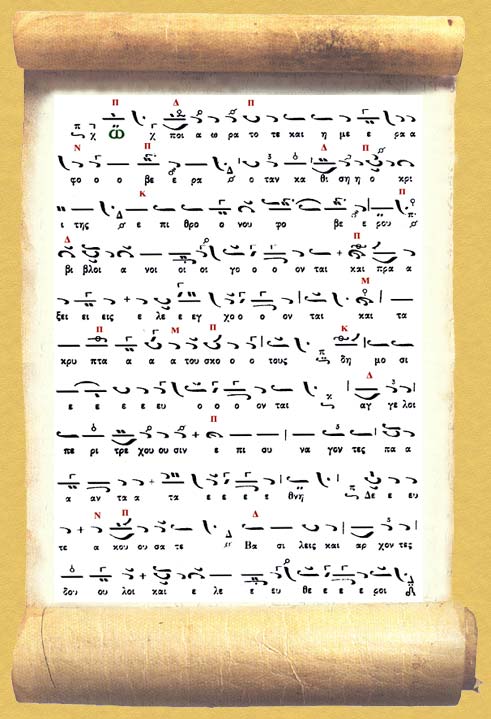 Ὢ ποι α ω ρα το τε και η με ε ρα α
φο ο ο βε ε ρα ο ταν κα θι ση η ο κρι
ι της ε πι θρο ο νου φο βε ε ρου
βι βλοι α νοι οι οι γο ο ο ον ται και πρα α
ξει ει εις ε λε ε εγ χο ο ο ον ται και τα
κρυ πτα α α α του σκο ο ο τους δη μο σι
ε ε ε ε ευ ο ο ο ον ται αγ γε λοι
πε ρι τρε χου ου σιν ε πι συ να γον τες πα α
α αν τα α τα ε ε ε ε θνη Δε ε ευ
τε α κου ου σα τε Βα σι λεις και αρ χον τες
δου ου λοι και ε λε ε ευ θε ε ε ε ροι